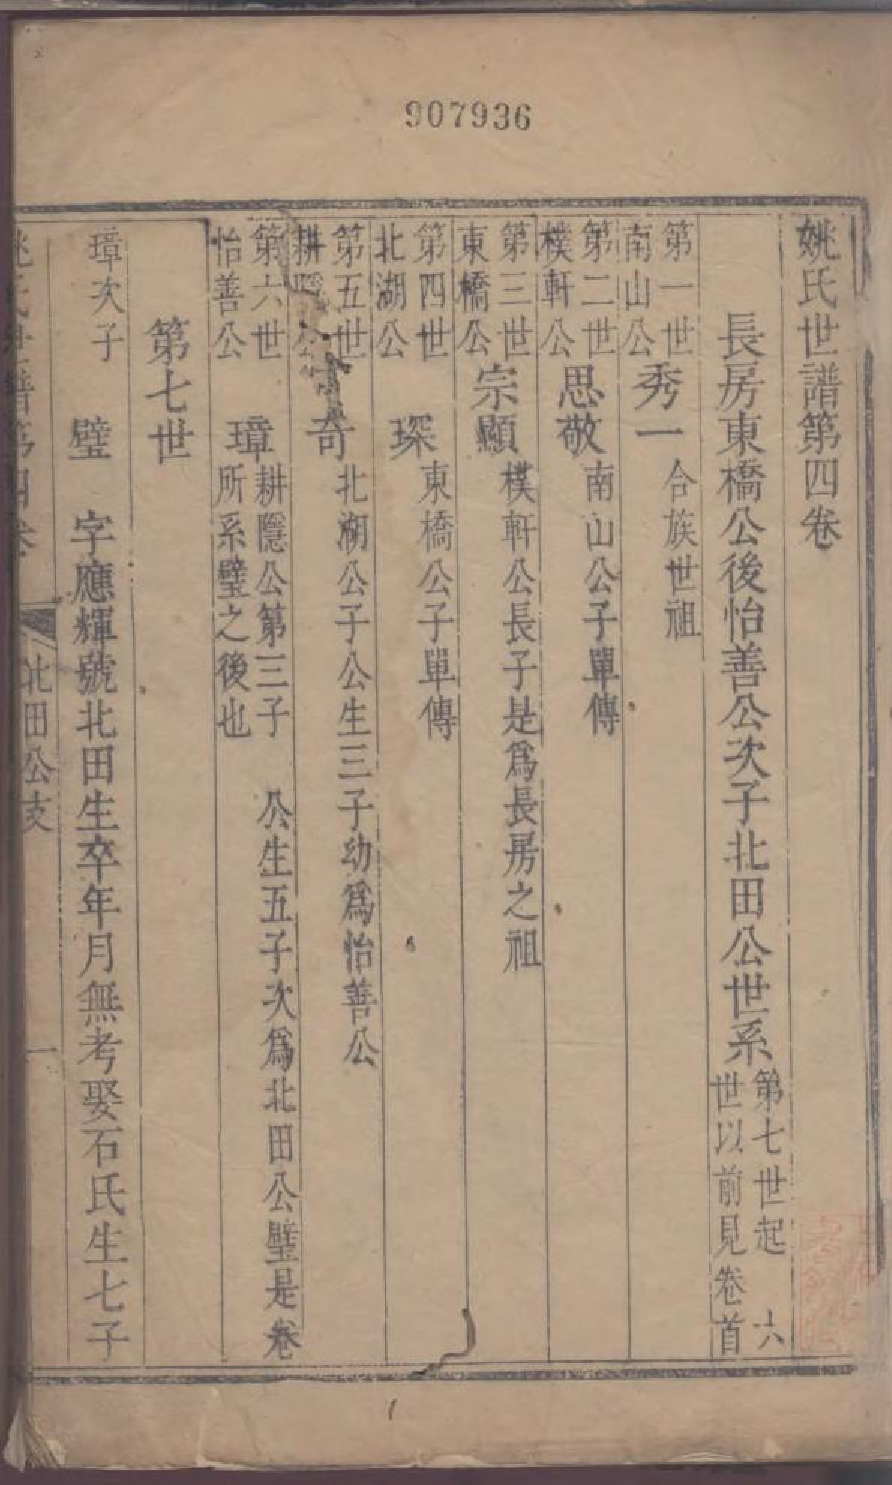 907936
姚氏世譜第四卷
長房東橋公後怡善公次子北田公世系
第七世起 六
世以前見卷首
第一世
南山公
秀一
合族世祖
第二世
樸軒公
思敬
南山公子單傳
第三世
東橋公
宗顯
樸軒公長子是爲長房之祖
第四世
北湖公
琛
東橋公子單傳
第五世
耕隱公
奇
北湖公子公生三子幼爲怡善公
第六世
怡善公
璋
耕隱公第三子 公生五子次爲北田公璧是卷
所系璧之後也
第七世
璋次子
璧 字應輝號北田生卒年月無考娶石氏生七子
姚氏世譜第四卷
北田公支
一